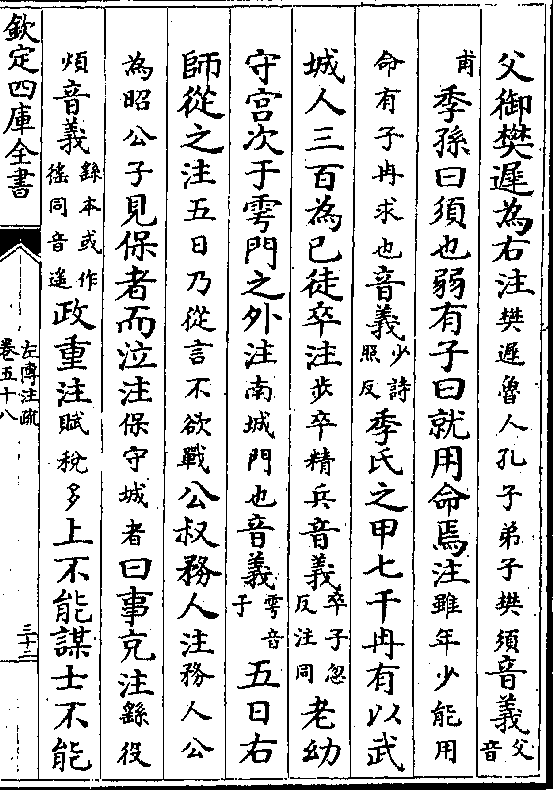 父御樊遲為右注樊遲魯人孔子弟子樊須音義父音
甫季孫曰須也弱有子曰就用命焉注雖年少能用
命有子冉求也音義少詩照反季氏之甲七千冉有以武
城人三百為己徒卒注步卒精兵音義卒子忽反注同老幼
守宫次于雩門之外注南城門也音義雩音于五日右
師從之注五日乃從言不欲戰公叔務人注務人公
為昭公子見保者而泣注保守城者曰事充注繇役
煩音義繇本或作徭同音遥政重注賦稅多上不能謀士不能
欽定四庫全書
左傳注疏
卷五十八
三十三